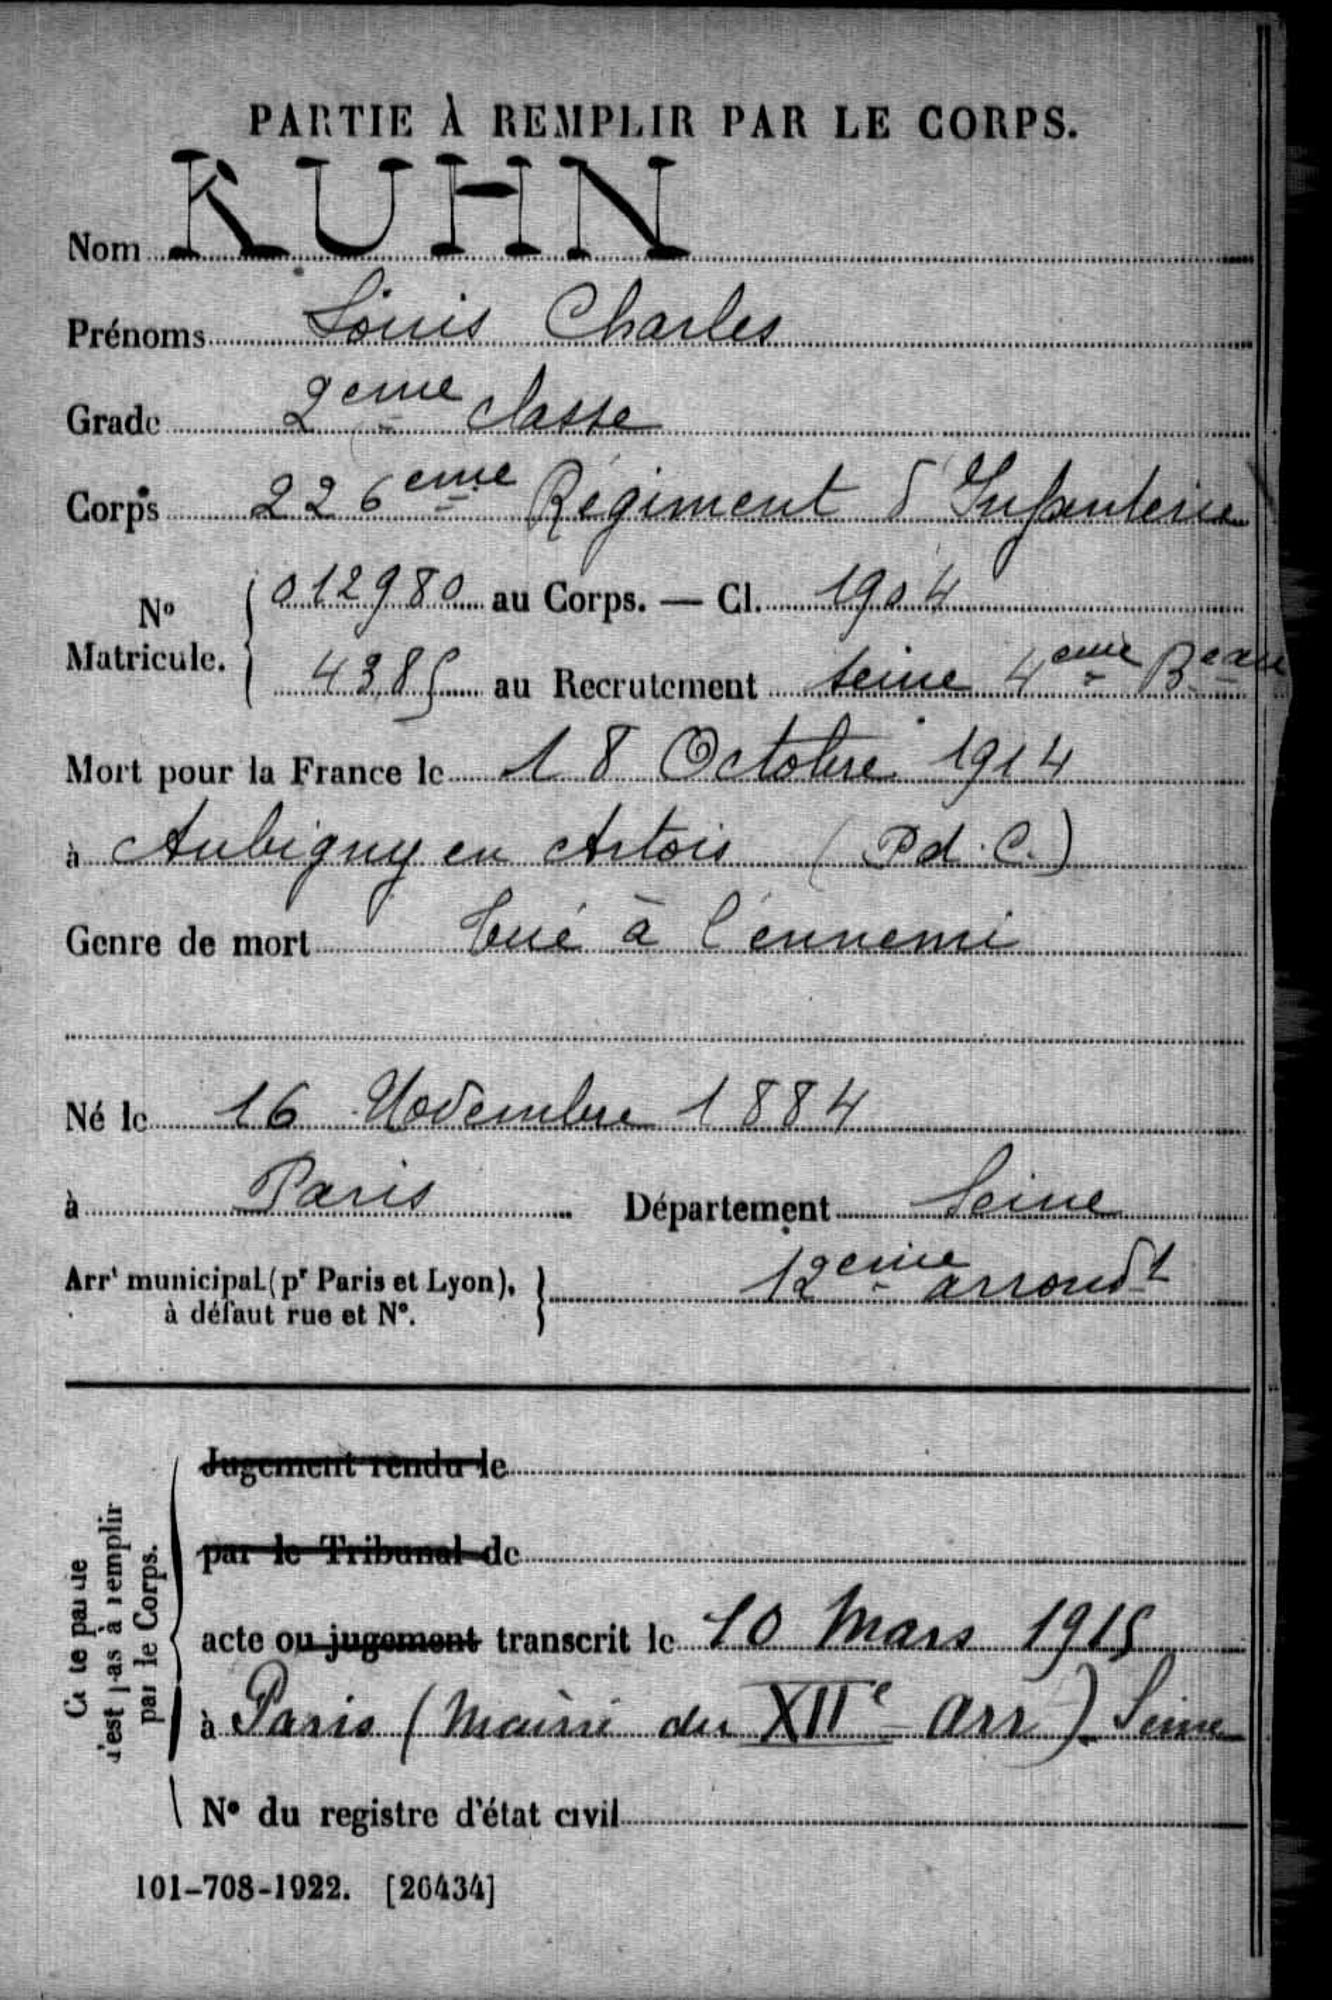 PARTIE À REMPLIR PAR LE CORPS.
Nom KUHN
Prénoms Louis Charles
Grade 2eme classe
Corps 226eme Régiment d'Infanterie
No Matricule. 012980 au Corps. — Cl. 1904
4385 au Recrutement Seine 4eme Beau
Mort pour la France le 18 Octobre 1914
à Aubigny en Artois (P.d.C.)
Genre de mort tué à l'ennemi
Né le 16 Novembre 1884
à Paris Département Seine
Arrt municipal (pr Paris et Lyon), à défaut rue et No. 12eme arrondt
Cette partie n'est pas à remplir par le Corps.
Jugement rendu le
par le Tribunal de
acte ou jugement transcrit le 10 Mars 1915
à Paris (Mairie du XIIe arr) Seine
No du registre d'état civil
101-708-1922. [26434]